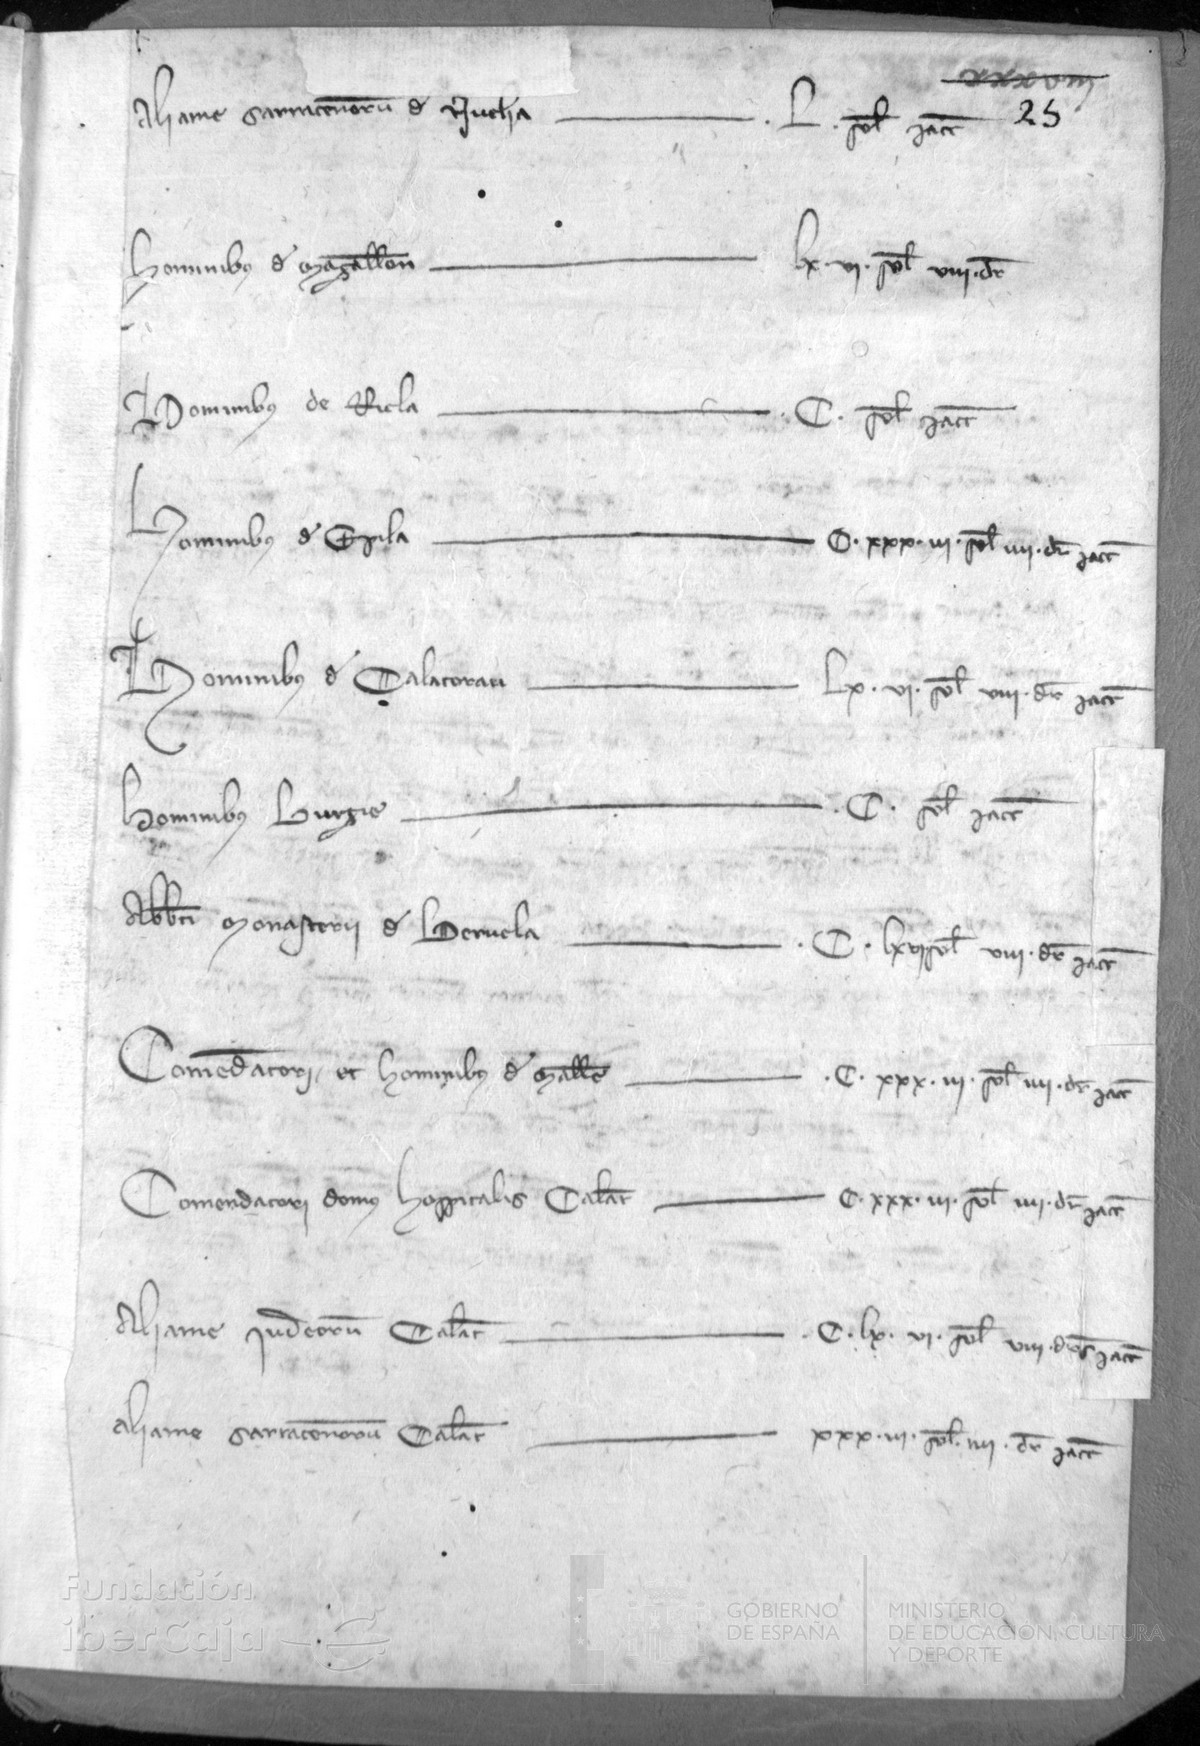 xxxviii
25
Aliame sarracenorũ đ Nuelha . L . sol iacc
Hominibꝫ đ Magallon lx . vi . sol viii . dr
Hominibꝫ de Ricla . C . sol iacc
Hominibꝫ đ Epila C . xxx . iii . sol iiii . dr iacc
Hominibꝫ đ Calatorao Lx . vi . sol viii . dr iacc
Hominibꝫ Burgie . C . sol iacc
Abbti Monasterii đ Beruela . C . lxvi sol viii . dr iacc
Comendatori et hominibꝫ đ Malle . C . xxx . iii . sol iiii . dr iacc
Comendatori domꝫ hospitalis Calat C . xxx . iii . sol iiii . dr iacc
Aliame judeorũ Calat . C . lx . vi . sol viii . drs iacc
aliame sarracenorũ Calat xxx . iii . sol . iiii . dr iacc
Fundación
iberCaja
GOBIERNO
DE ESPAÑA
MINISTERIO
DE EDUCACIÓN, CULTURA
Y DEPORTE